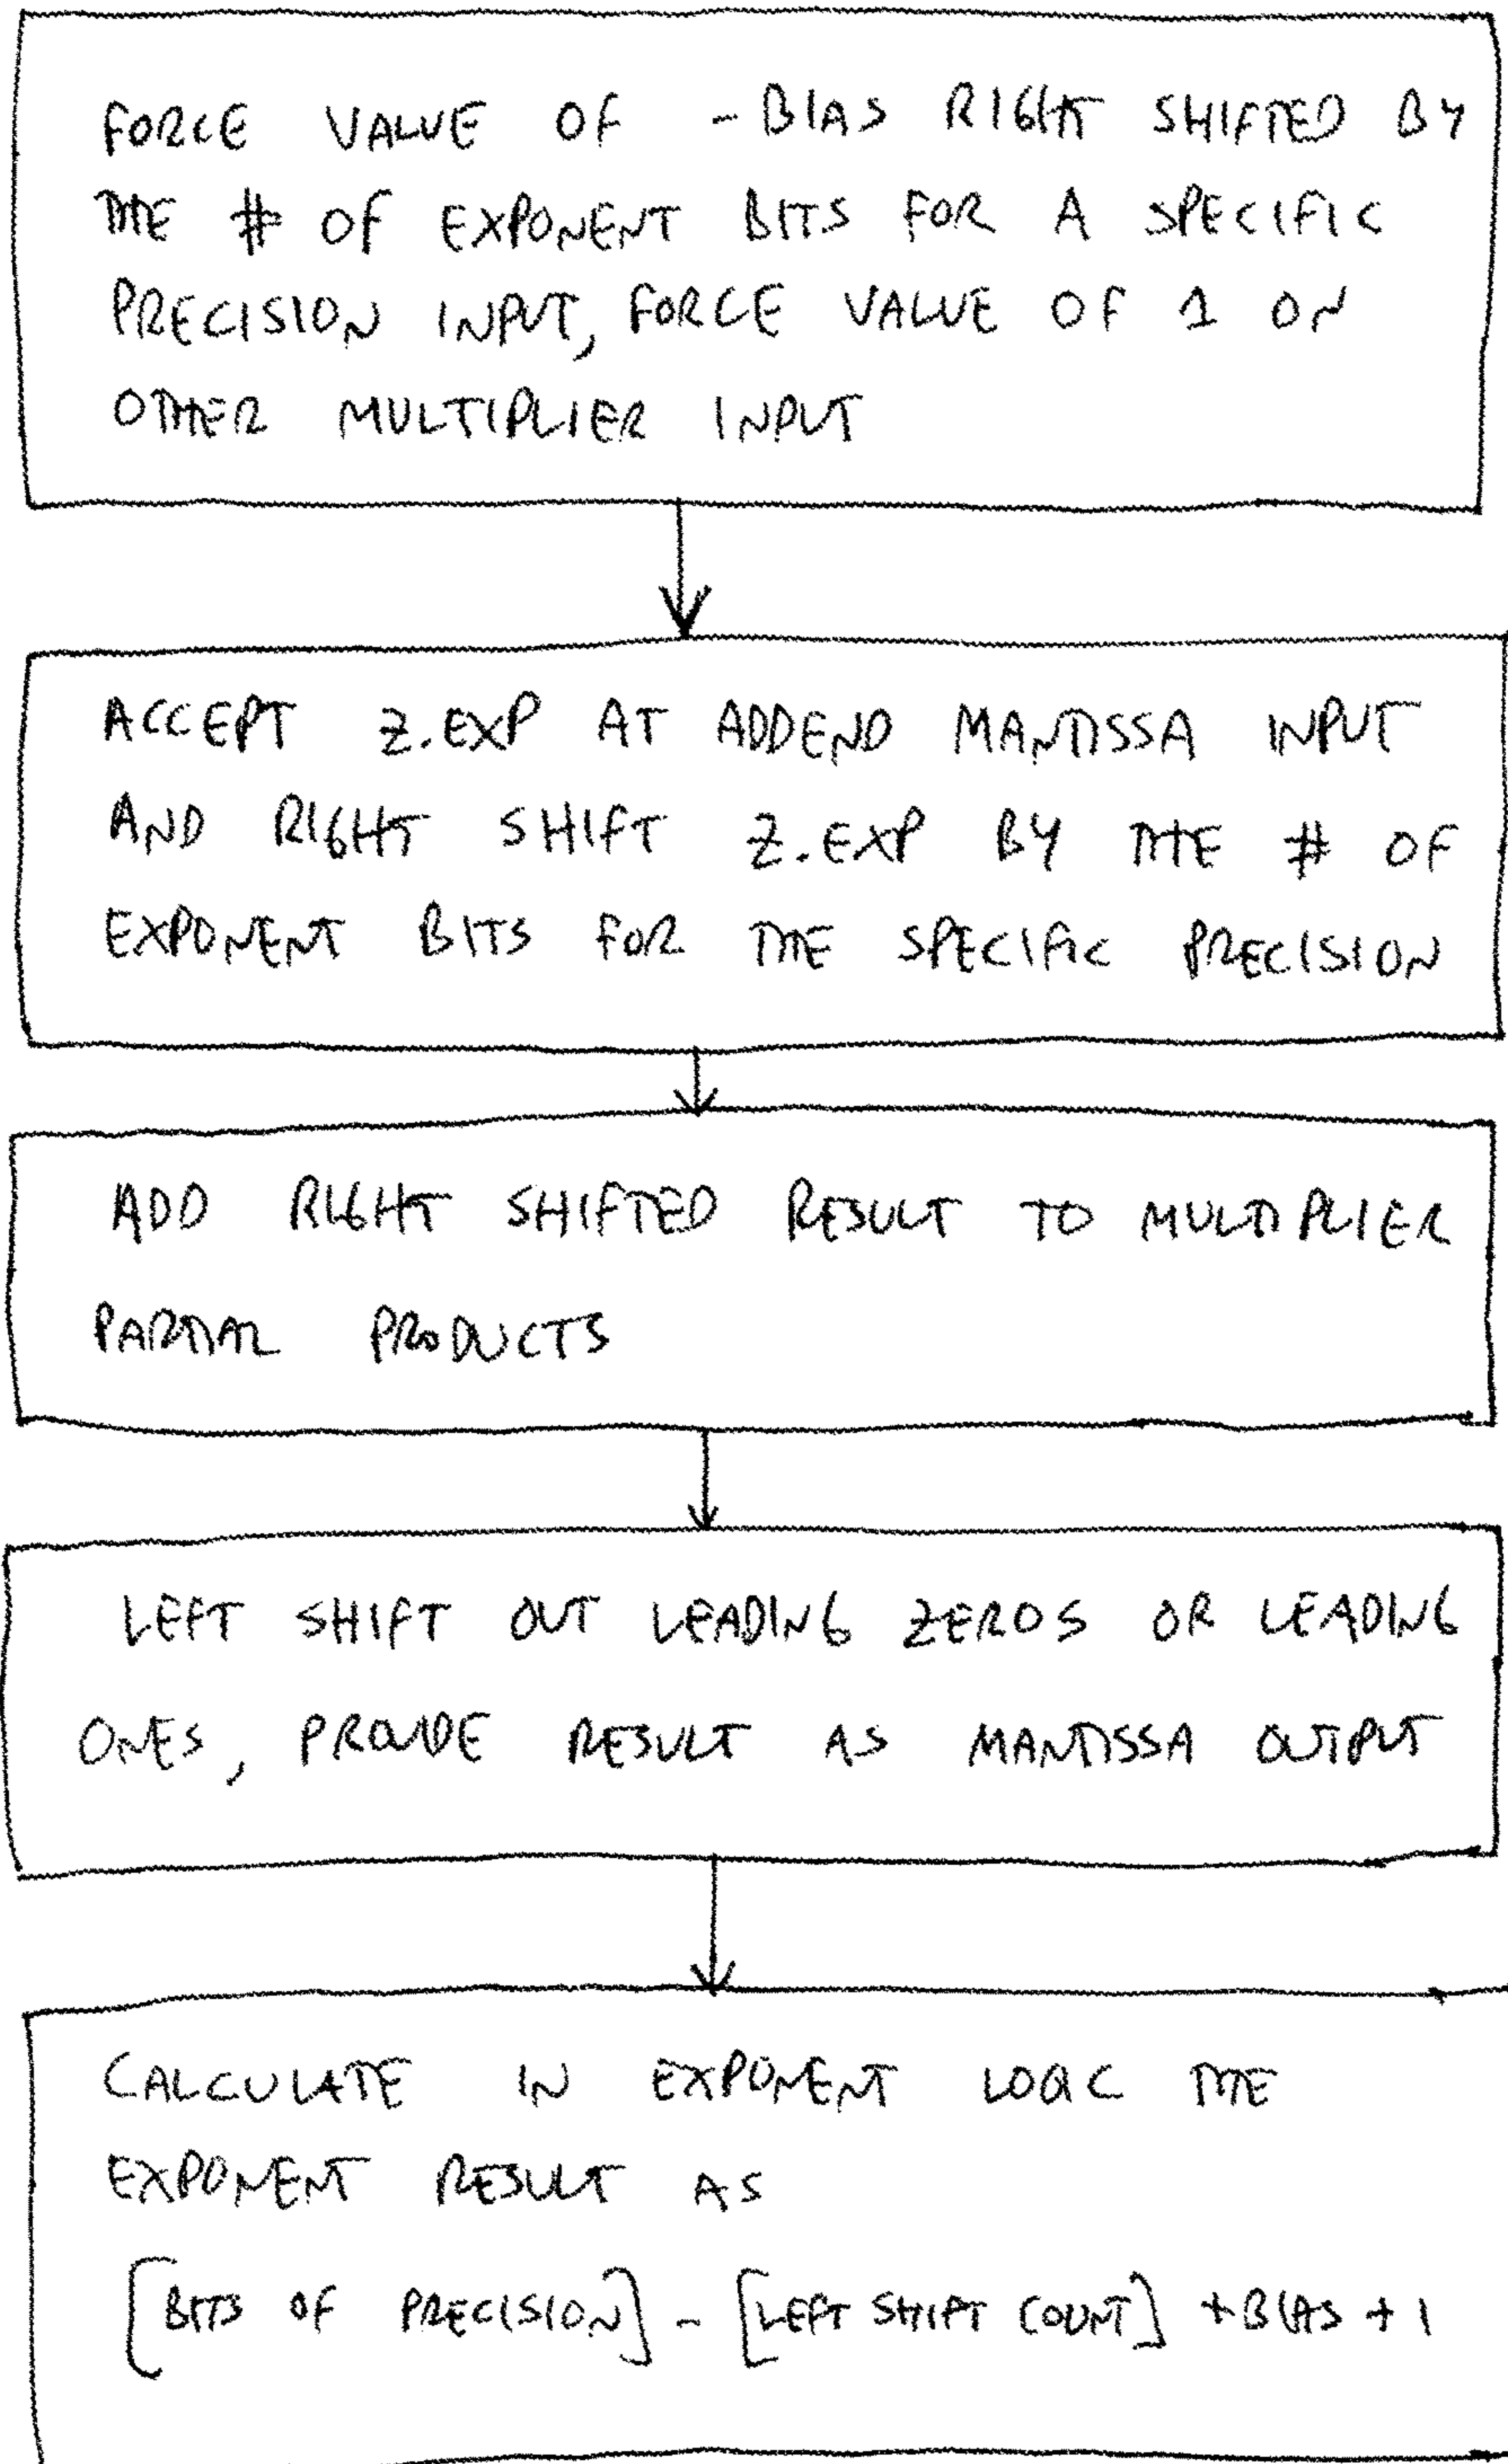 FORCE VALUE OF - BIAS RIGHT SHIFTED BY
THE # OF EXPONENT BITS FOR A SPECIFIC
PRECISION INPUT, FORCE VALUE OF 1 ON
OTHER MULTIPLIER INPUT
ACCEPT Z.EXP AT ADDEND MANTISSA INPUT
AND RIGHT SHIFT Z.EXP BY THE # OF
EXPONENT BITS FOR THE SPECIFIC PRECISION
ADD RIGHT SHIFTED RESULT TO MULTIPLIER
PARTIAL PRODUCTS
LEFT SHIFT OUT LEADING ZEROS OR LEADING
ONES, PROVIDE RESULT AS MANTISSA OUTPUT
CALCULATE IN EXPONENT LOGIC THE
EXPONENT RESULT AS
[BITS OF PRECISION] - [LEFT SHIFT COUNT] + BIAS + 1